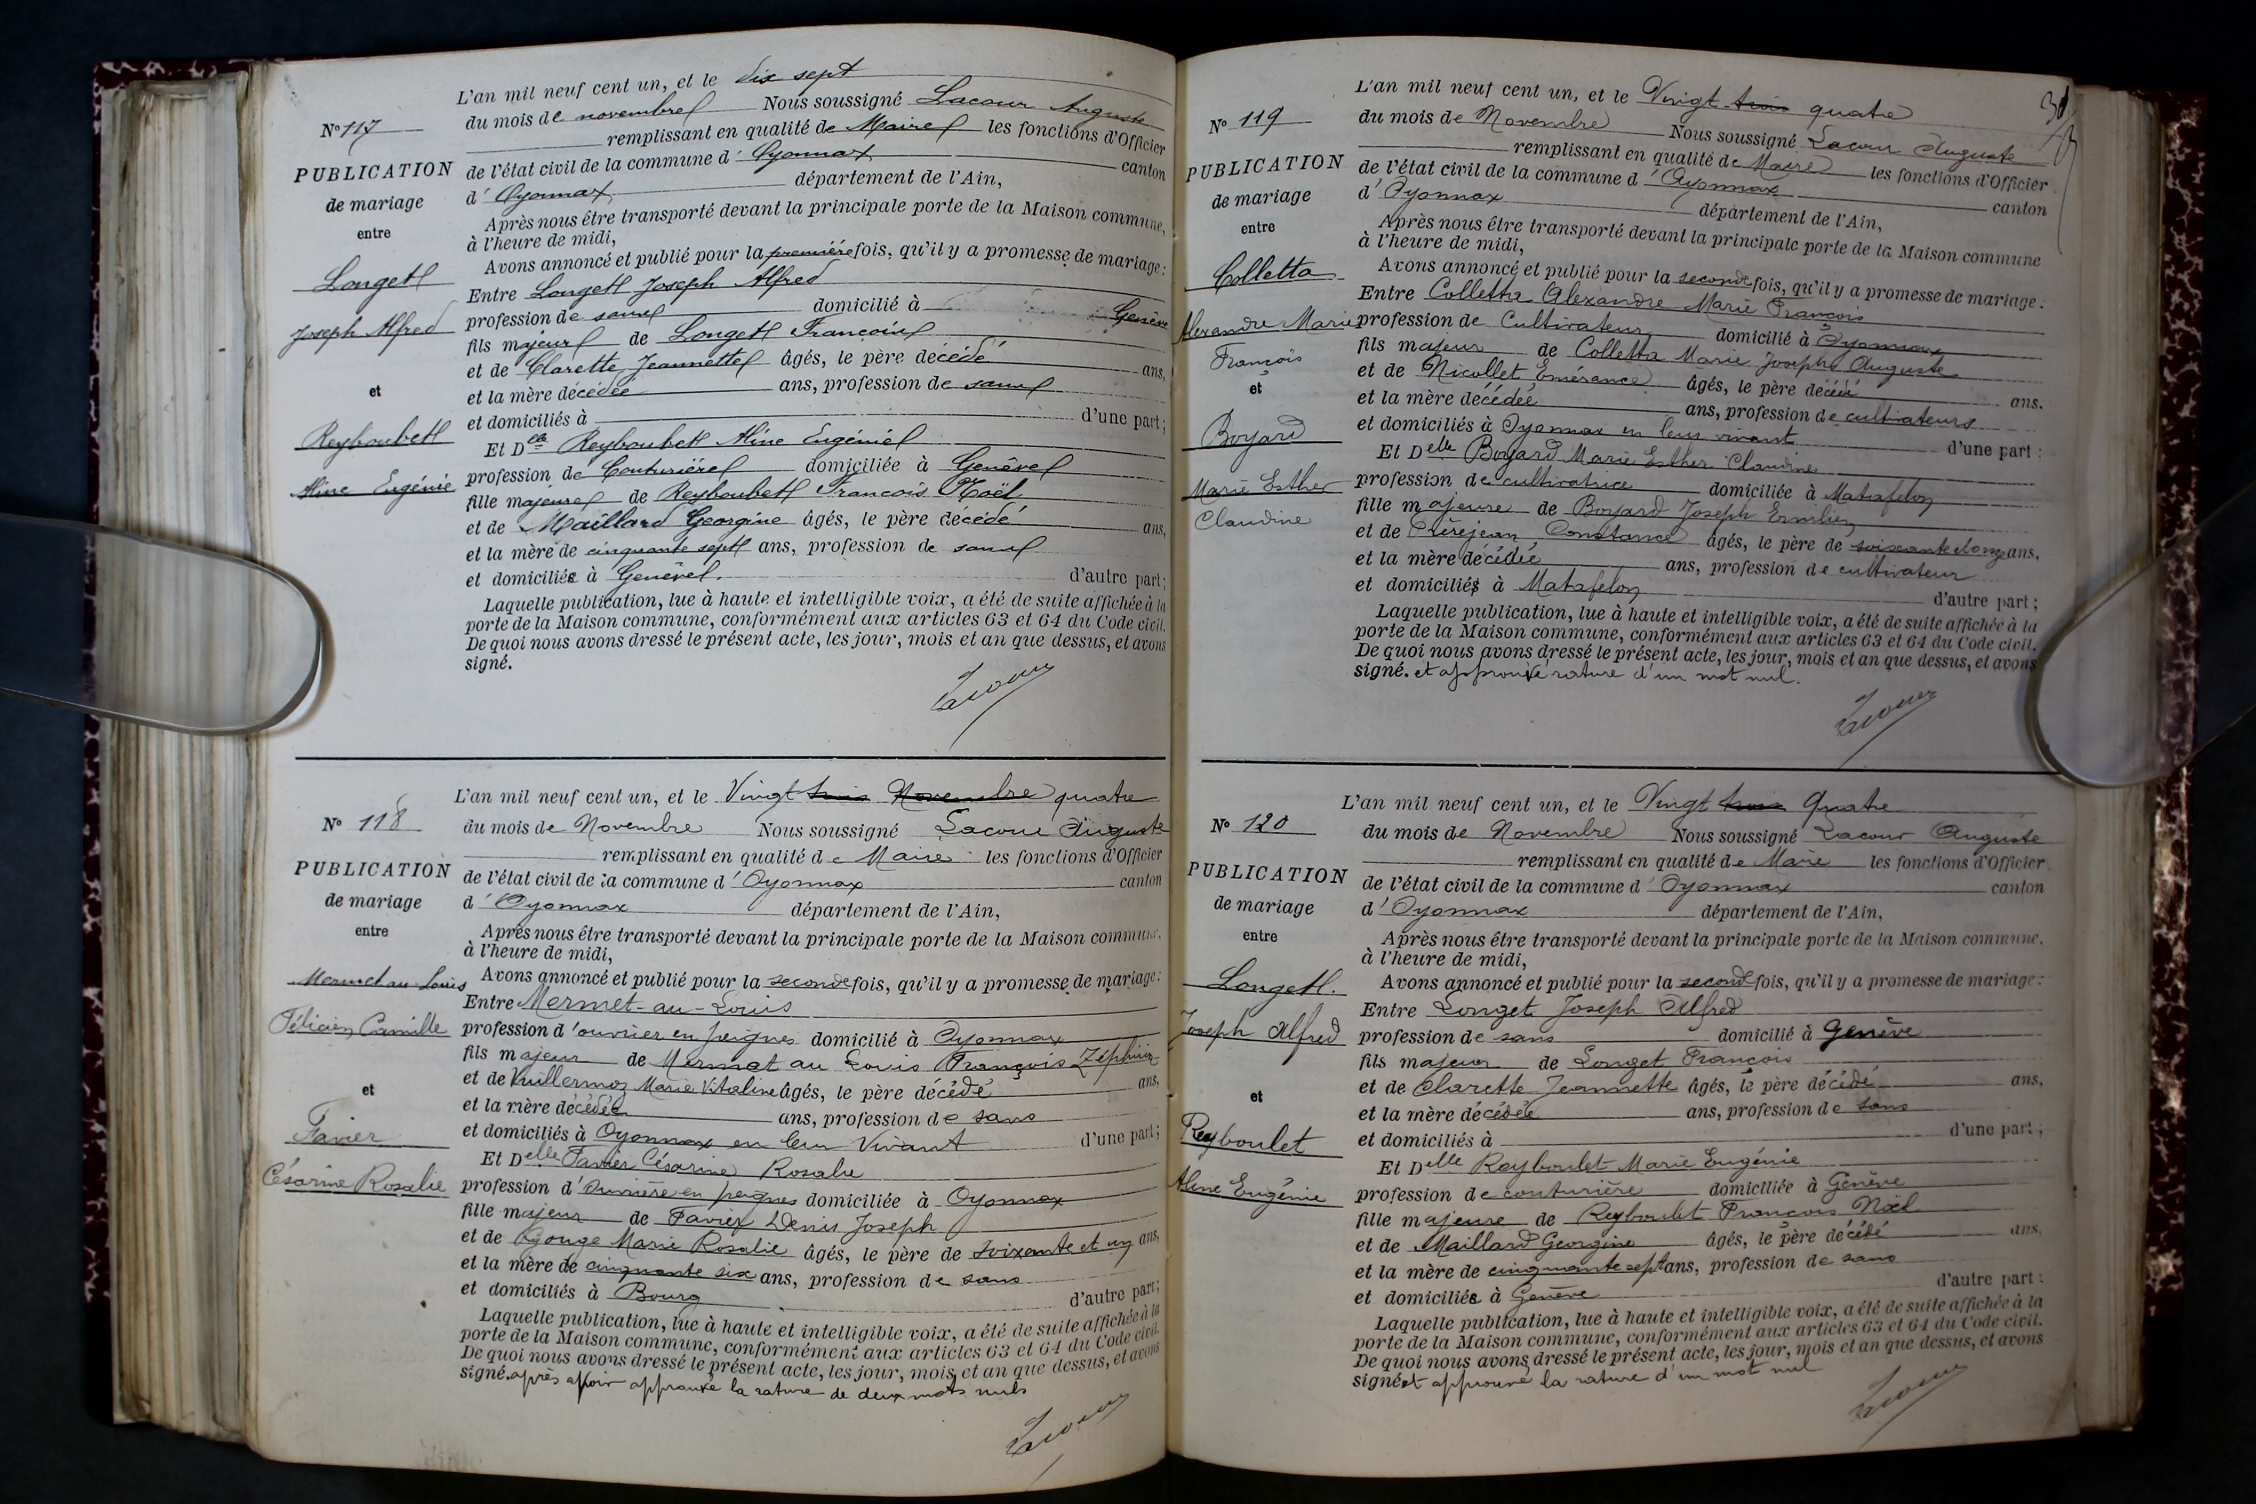 L'an mil neuf cent un, et le dix sept
du mois de novembre Nous soussigné Lacour Auguste
N° 117
remplissant en qualité de Maire les fonctions d'Officier
PUBLICATION
de l'état civil de la commune d' Oyonnax canton
d' Oyonnax département de l'Ain,
de mariage
Après nous être transporté devant la principale porte de la Maison commune,
entre
à l'heure de midi,
Avons annoncé et publié pour la première fois, qu'il y a promesse de mariage:
Longet
Entre Longet Joseph Alfred
profession de sans domicilié à Genève
Joseph Alfred
fils majeur de Longet François
et de Clarette Jeannette âgés, le père décédé ans,
et
et la mère décédée ans, profession de sans
et domiciliés à d'une part;
Reyboubet
Et Delle Reyboubet Aline Eugénie
profession de Couturière domiciliée à Genève
Aline Eugénie
fille majeure de Reyboubet François Noël
et de Maillard Georgine âgés, le père décédé ans,
et la mère de cinquante sept ans, profession de sans
et domiciliée à Genève. d'autre part;
Laquelle publication, lue à haute et intelligible voix, a été de suite affichée à la
porte de la Maison commune, conformément aux articles 63 et 64 du Code civil.
De quoi nous avons dressé le présent acte, les jour, mois et an que dessus, et avons
signé.
Lacour
L'an mil neuf cent un, et le Vingt trois Novembre quatre
N° 118
du mois de Novembre Nous soussigné Lacour Auguste
remplissant en qualité de Maire les fonctions d'Officier
PUBLICATION
de l'état civil de la commune d' Oyonnax canton
de mariage
d' Oyonnax département de l'Ain,
entre
Après nous être transporté devant la principale porte de la Maison commune,
à l'heure de midi,
Mermet au Louis
Avons annoncé et publié pour la seconde fois, qu'il y a promesse de mariage:
Entre Mermet-au-Louis
Félicien Camille
profession d'ouvrier en peignes domicilié à Oyonnax
fils majeur de Mermet au Louis François Zéphirin
et de Vuillermoz Marie Vitaline âgés, le père décédé ans,
et
et la mère décédée ans, profession de sans
Favier
et domiciliés à Oyonnax en leur Vivant d'une part;
Et Delle Favier Césarine Rosalie
Césarine Rosalie
profession d'ouvrière en peignes domiciliée à Oyonnax
fille majeur de Favier Denis Joseph
et de Gouge Marie Rosalie âgés, le père de soixante et un ans,
et la mère de cinquante six ans, profession de sans
et domiciliés à Bourg d'autre part;
Laquelle publication, lue à haute et intelligible voix, a été de suite affichée à la
porte de la Maison commune, conformément aux articles 63 et 64 du Code civil.
De quoi nous avons dressé le présent acte, les jour, mois et an que dessus, et avons
signé. après avoir approuvé la rature de deux mots nuls
Lacour
L'an mil neuf cent un, et le Vingt trois quatre
N° 119
du mois de Novembre Nous soussigné Lacour Auguste
remplissant en qualité de Maire les fonctions d'Officier
PUBLICATION
de l'état civil de la commune d' Oyonnax canton
de mariage
d' Oyonnax département de l'Ain,
entre
Après nous être transporté devant la principale porte de la Maison commune
à l'heure de midi,
Colletta
Avons annoncé et publié pour la seconde fois, qu'il y a promesse de mariage:
Entre Colletta Alexandre Marie François
Alexandre Marie
profession de Cultivateur domicilié à Oyonnax
François
fils majeur de Colletta Marie Joseph Auguste
et de Nicollet Emérance âgés, le père décédé ans.
et
et la mère décédée ans, profession de cultivateurs
Boyard
et domiciliés à Oyonnax en leur vivant d'une part:
Et Delle Boyard Marie Esther Claudine
Marie Esther
profession de cultivatrice domiciliée à Matafelon
Claudine
fille majeure de Boyard Joseph Emilien
et de Préréjean Constance âgés, le père de soixante et onze ans,
et la mère décédée ans, profession de cultivateur
et domiciliés à Matafelon d'autre part;
Laquelle publication, lue à haute et intelligible voix, a été de suite affichée à la
porte de la Maison commune, conformément aux articles 63 et 64 du Code civil.
De quoi nous avons dressé le présent acte, les jour, mois et an que dessus, et avons
signé. et approuvé rature d'un mot nul.
Lacour
L'an mil neuf cent un, et le Vingt trois Quatre
N° 120
du mois de Novembre Nous soussigné Lacour Auguste
remplissant en qualité de Maire les fonctions d'Officier
PUBLICATION
de l'état civil de la commune d' Oyonnax canton
de mariage
d' Oyonnax département de l'Ain,
entre
Après nous être transporté devant la principale porte de la Maison commune,
à l'heure de midi,
Longet.
Avons annoncé et publié pour la seconde fois, qu'il y a promesse de mariage:
Entre Longet Joseph Alfred
Joseph Alfred
profession de sans domicilié à Genève
fils majeur de Longet François
et de Clarette Jeannette âgés, le père décédé ans,
et
et la mère décédée ans, profession de sans
Reyboulet
et domiciliés à d'une part;
Et Delle Reyboulet Marie Eugénie
Aline Eugénie
profession de couturière domiciliée à Genève
fille majeure de Reyboulet François Noël
et de Maillard Georgine âgés, le père décédé ans,
et la mère de cinquante sept ans, profession de sans
et domiciliée à Genève d'autre part:
Laquelle publication, lue à haute et intelligible voix, a été de suite affichée à la
porte de la Maison commune, conformément aux articles 63 et 64 du Code civil.
De quoi nous avons dressé le présent acte, les jour, mois et an que dessus, et avons
signé et approuvé la rature d'un mot nul
Lacour